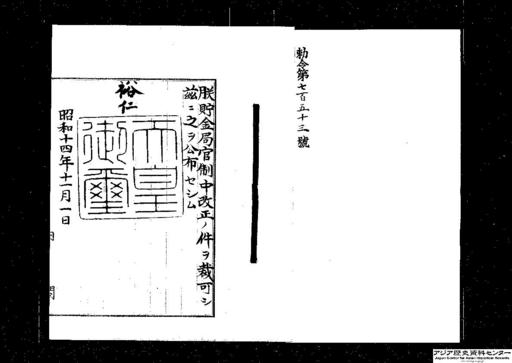 勅令第七百五十三號
朕貯金局官制中改正ノ件ヲ裁可シ
茲ニ之ヲ公布セシム
裕仁
天皇
御璽
昭和十四年十一月一日
内閣
アジア歴史資料センター
Japan Center for Asian Historical Records